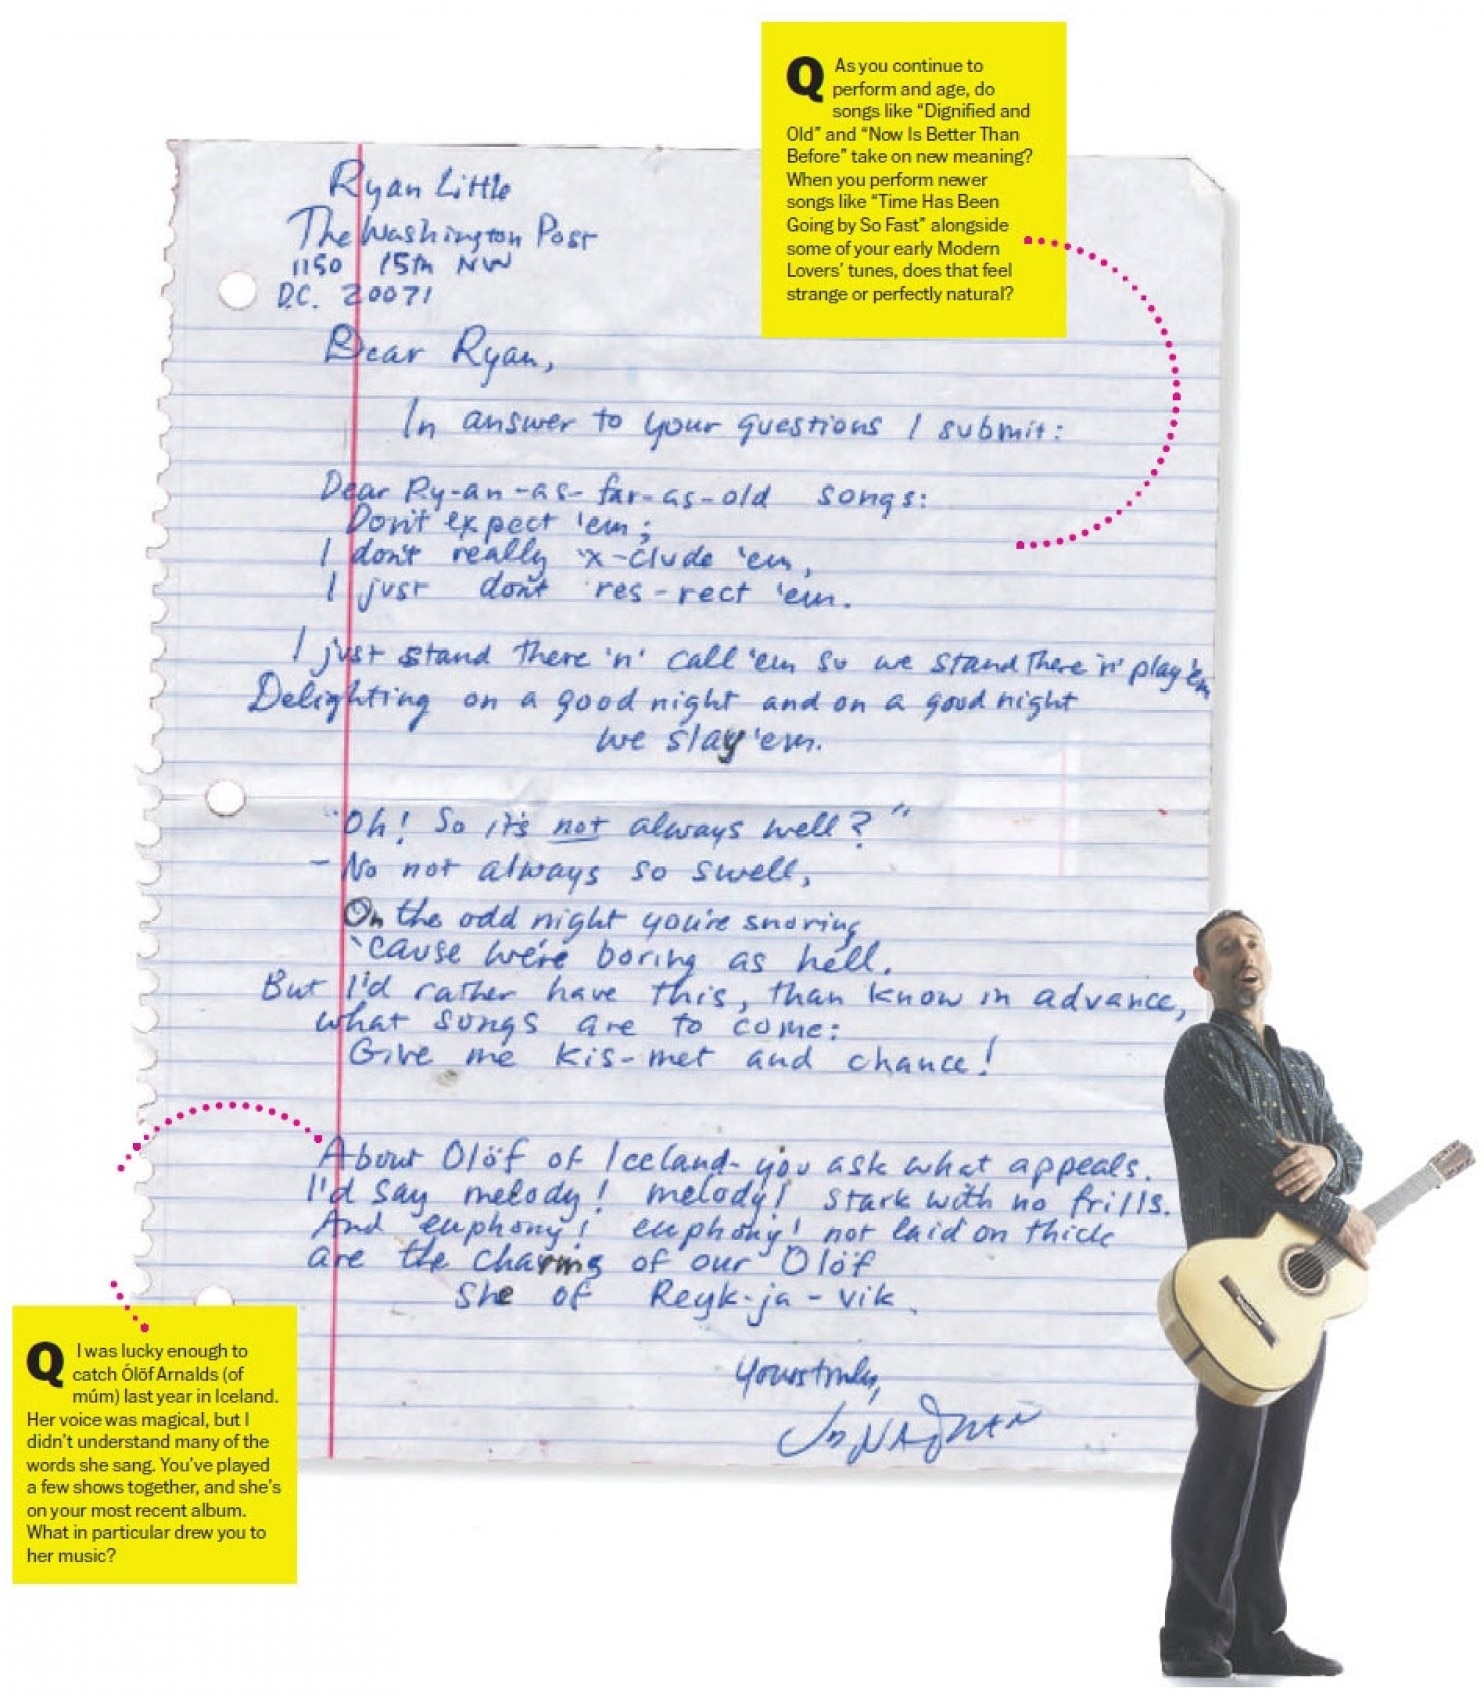 Q As you continue to
perform and age, do
songs like “Dignified and
Old” and “Now Is Better Than
Before” take on new meaning?
When you perform newer
songs like “Time Has Been
Going by So Fast” alongside
some of your early Modern
Lovers’ tunes, does that feel
strange or perfectly natural?
Ryan Little
The Washington Post
1150 15th NW
D.C. 20071
Dear Ryan,
In answer to your questions I submit:
Dear Ry-an-as-far-as-old songs:
Don't expect 'em;
I don't really 'x-clude 'em,
I just don't res-rect 'em.
I just stand there 'n' call 'em so we stand there 'n' play 'em
Delighting on a good night and on a good night
we slay 'em.
"Oh! So it's not always well?"
- No not always so swell,
On the odd night you're snoring
'cause we're boring as hell.
But I'd rather have this, than know in advance,
what songs are to come:
Give me kis-met and chance!
About Olöf of Iceland-you ask what appeals.
I'd say melody! melody! stark with no frills.
And euphony! euphony! not laid on thick
are the charms of our Olöf
She of Reyk-ja-vik.
Yours truly,
Jonathan
Q I was lucky enough to
catch Ólöf Arnalds (of
múm) last year in Iceland.
Her voice was magical, but I
didn’t understand many of the
words she sang. You’ve played
a few shows together, and she’s
on your most recent album.
What in particular drew you to
her music?